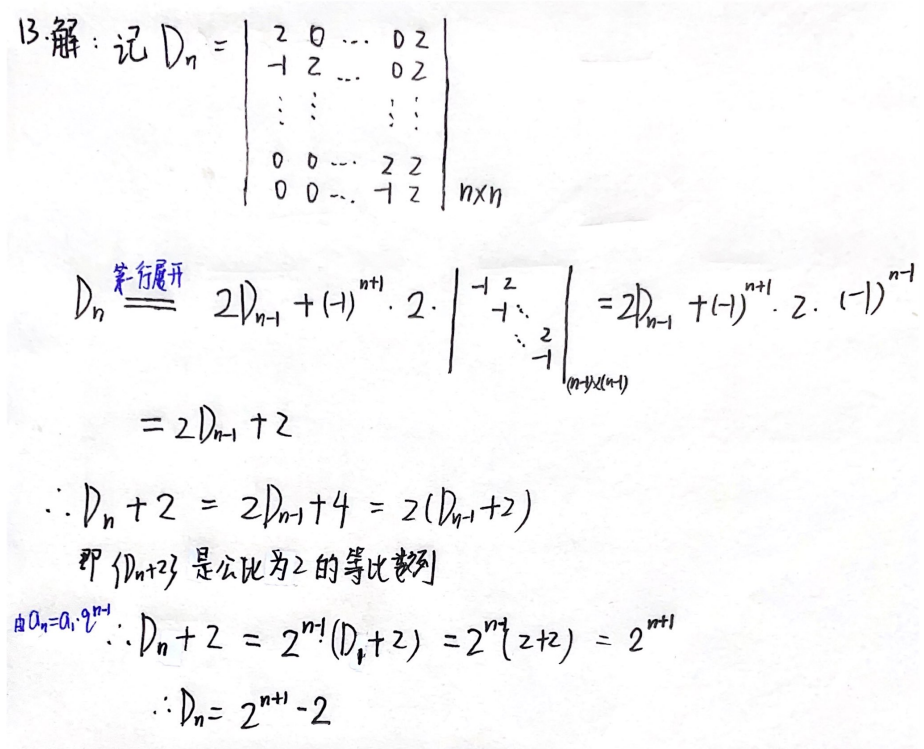 13.解：记 Dₙ = | 2 0 ⋯ 0 2
-1 2 ⋯ 0 2
⋮ ⋮ ⋮ ⋮
0 0 ⋯ 2 2
0 0 ⋯ -1 2 | n×n
第一行展开
Dₙ = 2Dₙ₋₁ + (-1)ⁿ⁺¹ · 2 · | -1 2 -1 ⋱ ⋱ 2 -1 |(n-1)×(n-1) = 2Dₙ₋₁ + (-1)ⁿ⁺¹ · 2 · (-1)ⁿ⁻¹
= 2Dₙ₋₁ + 2
∴ Dₙ + 2 = 2Dₙ₋₁ + 4 = 2(Dₙ₋₁ + 2)
即 {Dₙ+2} 是公比为2的等比数列
由aₙ=a₁·qⁿ⁻¹ ∴ Dₙ + 2 = 2ⁿ⁻¹(D₁+2) = 2ⁿ⁻¹(2+2) = 2ⁿ⁺¹
∴ Dₙ = 2ⁿ⁺¹ - 2